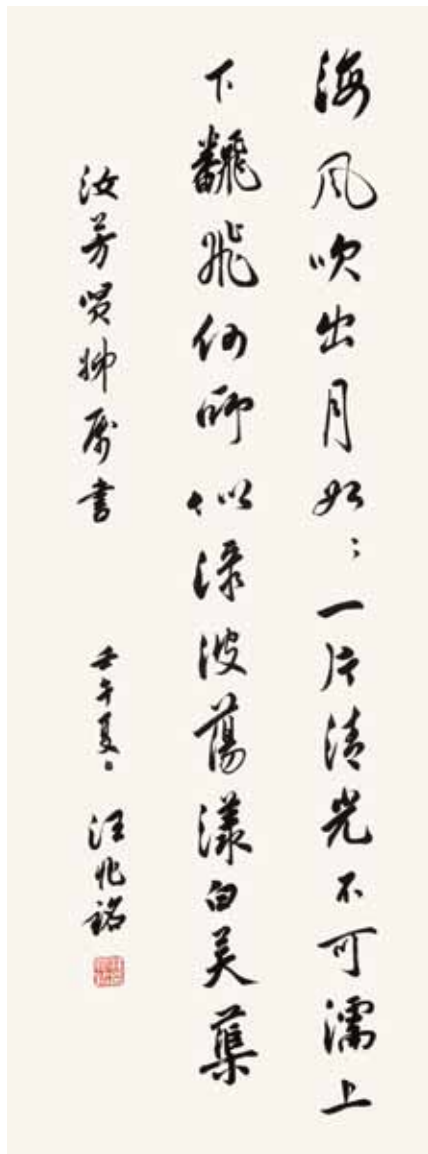 海風吹出月如〻一片清光不可濡上
下飜飛何所似渌波蕩漾白芙蕖
汝芳賢姊屬書 壬午夏日 汪兆銘